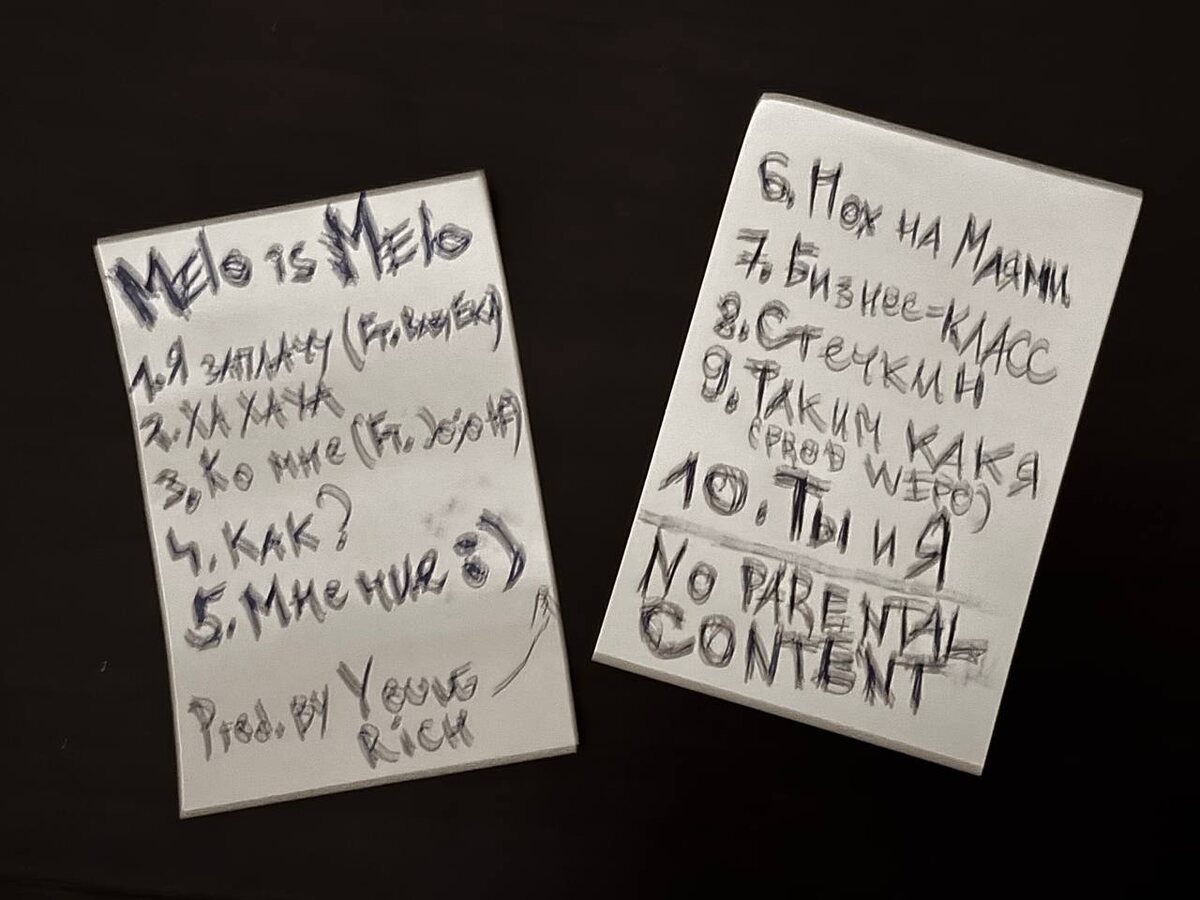 Melo is Melo
1. Я ЗАПЛАЧУ (Ft. BABYЁКА)
2. ХАХАХА
3. Ко мне (Ft.
4. КАК?
5. Мнения :)
Prod. By YOUNG
RICH
6. Нох на Маями
7. Бизнес=КЛАСС
8. Стечкин
9. ТАКИМ КАК Я
(PROD WEPO)
10. Ты и Я
NO PARENTAL
CONTENT